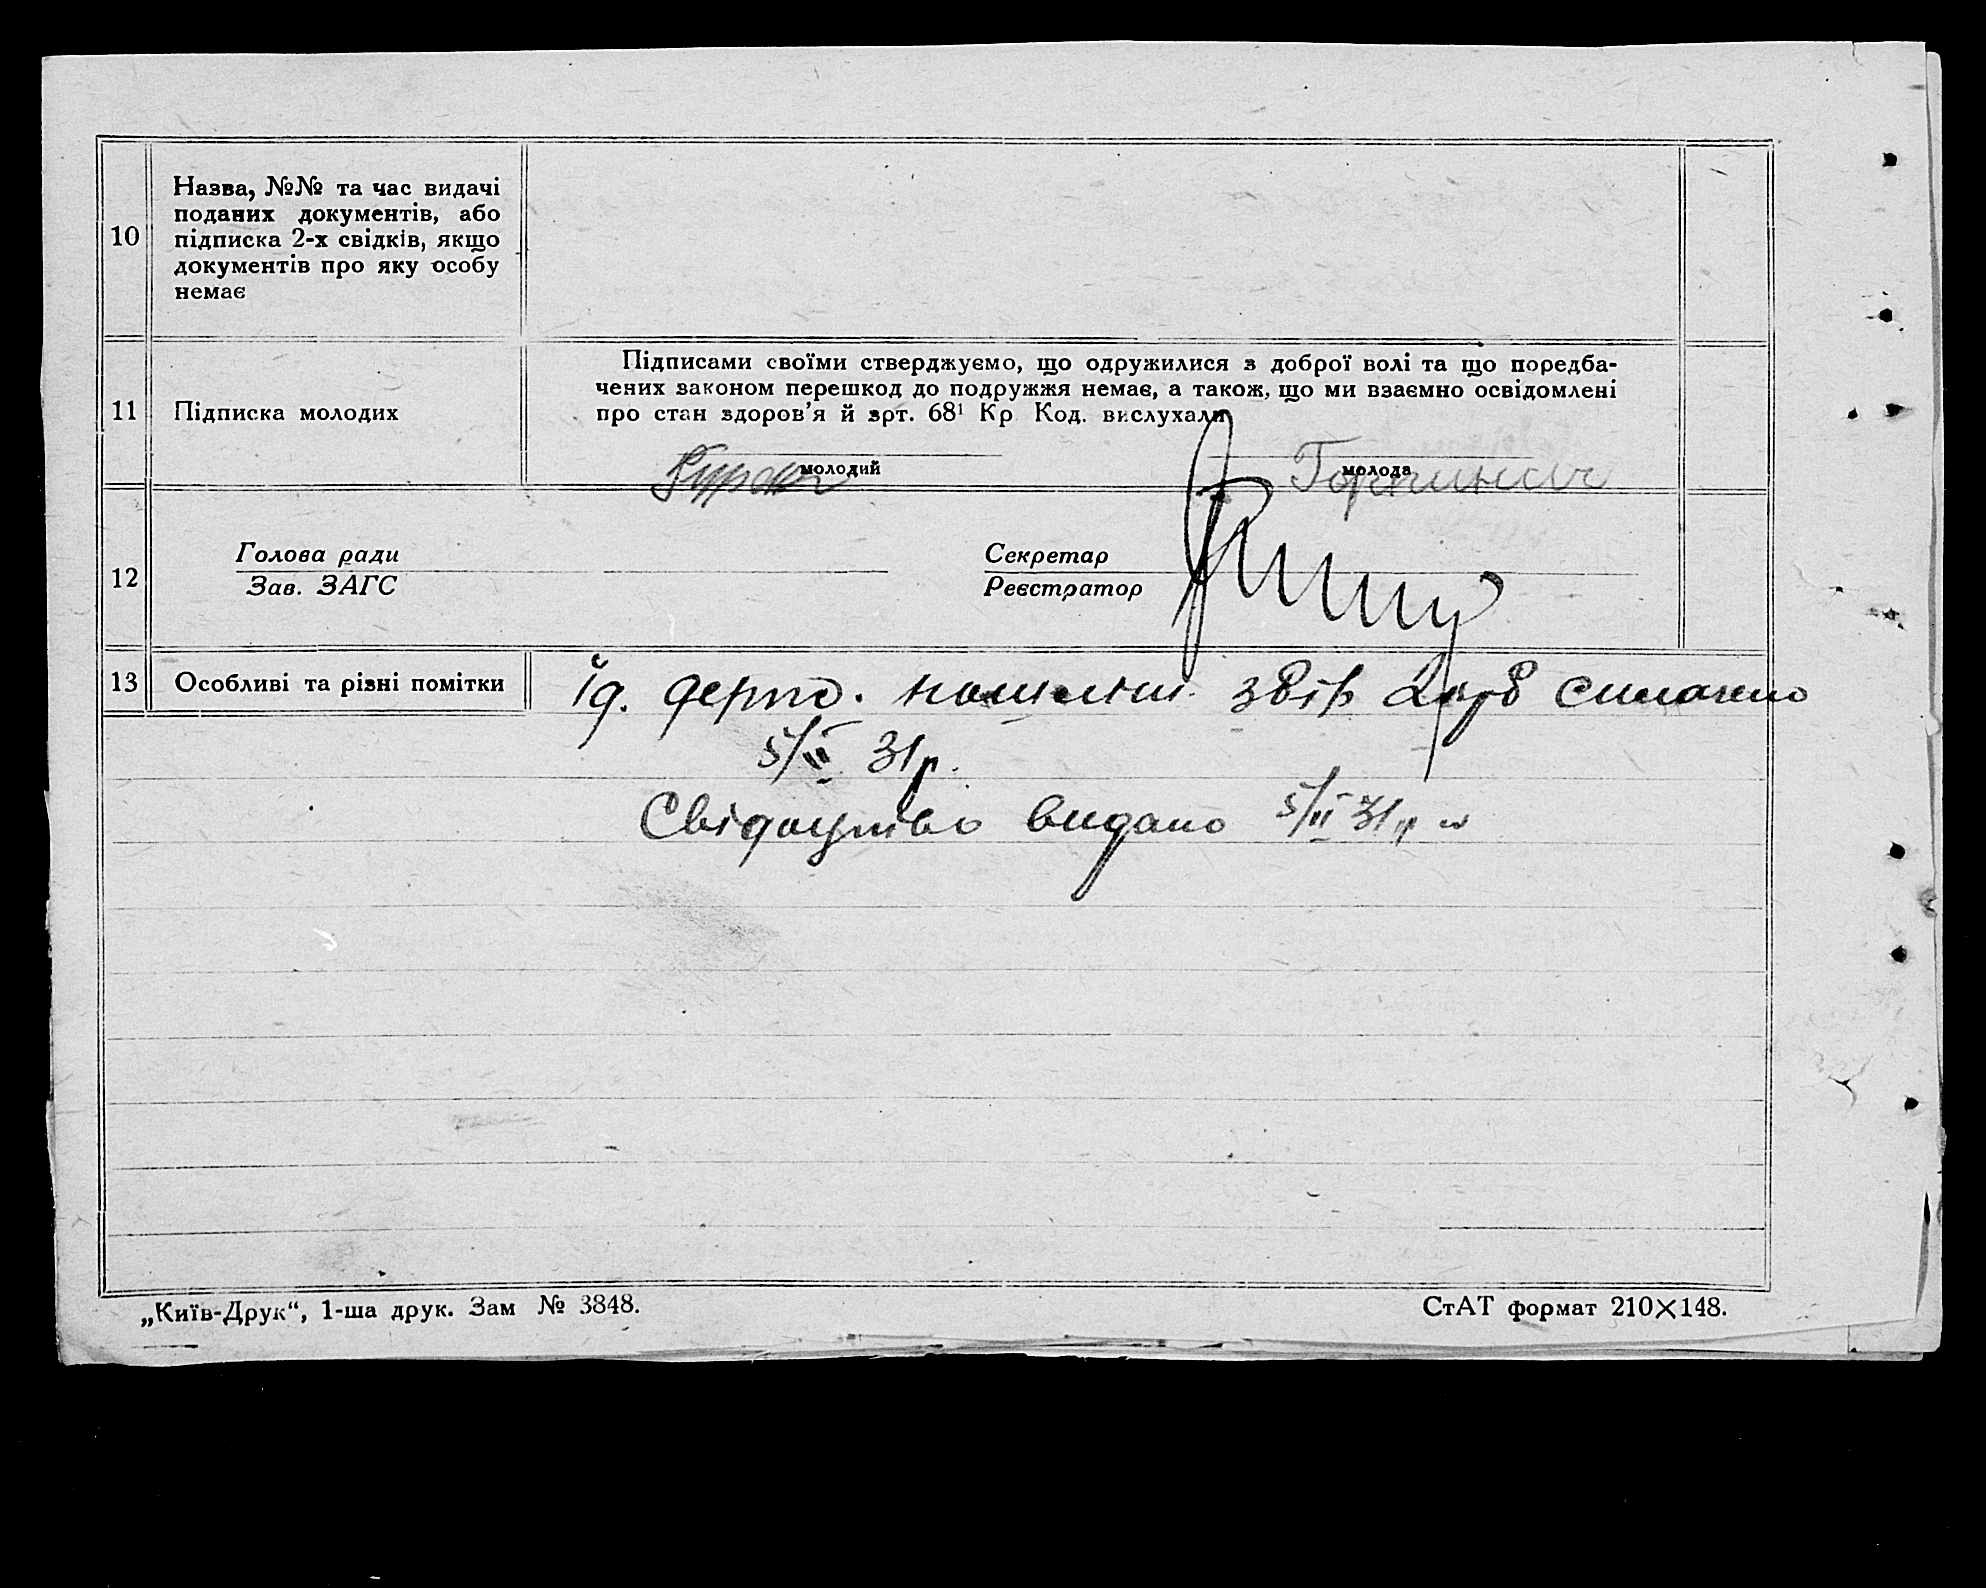 10
Назва, №№ та час видачі
поданих документів, або
підписка 2-х свідків, якщо
документів про яку особу
немає
11
Підписка молодих
Підписами своїми стверджуємо, що одружилися з доброї волі та що поредба-
чених законом перешкод до подружжя немає, а також, що ми взаємно освідомлені
про стан здоров'я й арт. 68¹ Кр. Код. вислухали
молодий
молода
12
Голова ради
Зав. ЗАГС
Секретар
Реєстратор
13
Особливі та різні помітки
5/II 31р.
Свідоцтво видано 5/II 31р
„Київ-Друк“, 1-ша друк. Зам № 3848.
СтАТ формат 210×148.